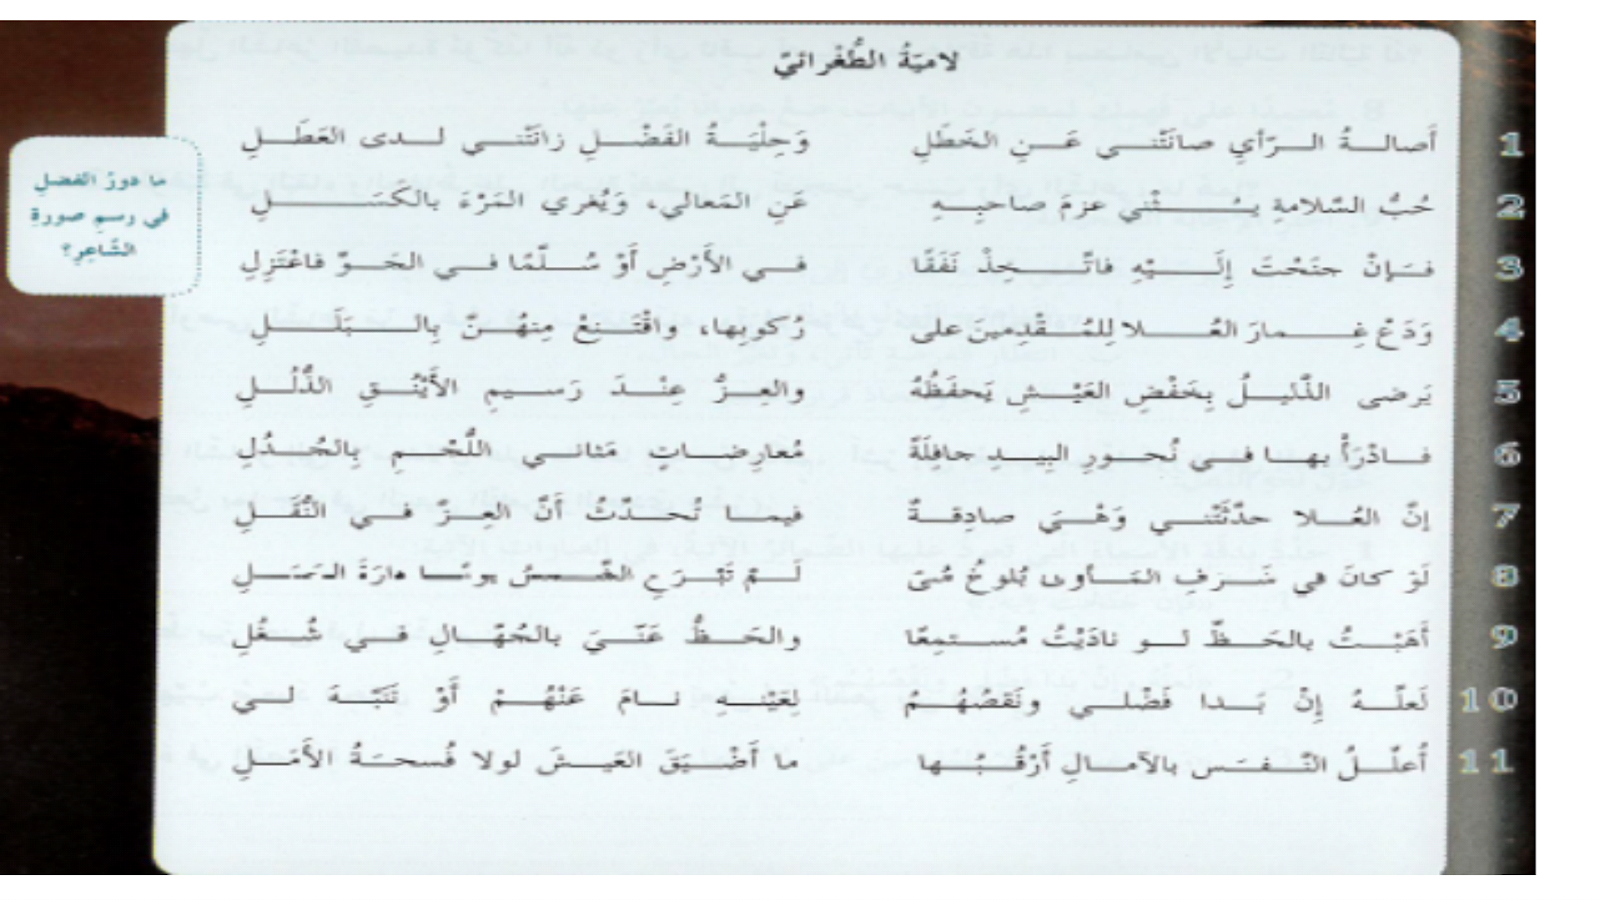 لاميّةُ الطُّغرائيّ
1 أَصالةُ الرّأيِ صانَتْني عَنِ الخَطَلِ وَحِلْيَةُ الفَضْلِ زانَتْني لدى العَطَلِ
2 حُبُّ السّلامةِ يُثْني عزمَ صاحبِهِ عَنِ المَعالي، وَيُغري المَرْءَ بالكَسَلِ
3 فإنْ جنَحْتَ إِلَيْهِ فاتّخِذْ نَفَقًا في الأَرْضِ أَوْ سُلّمًا في الجَوّ فاعْتَزِلِ
4 وَدَعْ غِمارَ العُلا لِلمُقْدِمينَ على رُكوبِها، واقْتَنِعْ مِنهُنَّ بِالبَلَلِ
5 يَرضى الذّليلُ بِخَفْضِ العَيْشِ يَحفَظُهُ والعِزُّ عِنْدَ رَسيمِ الأَيْنُقِ الذُّلُلِ
6 فادْرَأْ بها في نُحورِ البِيدِ جافِلَةً مُعارِضاتٍ مَثاني اللُّجْمِ بِالجُدُلِ
7 إنَّ العُلا حدّثَتْني وَهْيَ صادِقةٌ فيما تُحدّثُ أَنَّ العِزّ في النُّقَلِ
8 لَوْ كانَ في شَرَفِ المَأوى بُلوغُ مُنًى لَمْ تَبْرَحِ الشّمسُ يومًا دارَةَ الحَمَلِ
9 أَهَبْتُ بالحَظّ لو نادَيْتُ مُستمِعًا والحَظُّ عَنّيَ بالجُهّالِ في شُغُلِ
10 لَعلّهُ إِنْ بَدا فَضْلي ونَقْصُهُمُ لِعَيْنِهِ نامَ عَنْهُمْ أَوْ تَنَبّهَ لي
11 أُعلّلُ النّفسَ بالآمالِ أَرْقُبُها ما أَضْيَقَ العَيشَ لولا فُسحَةُ الأَمَلِ
ما دورُ الفضلِ
في رسمِ صورةِ
الشّاعِرِ؟